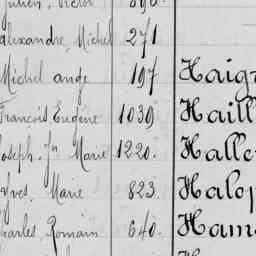 Julien, Victor 896.
Alexandre, Michel 271
Michel ange 197 Haig
François Eugène 1039 Haill
Joseph, Jn Marie 1220. Halle
Yves, Marie 823. Halop
Charles, Romain 640. Ham